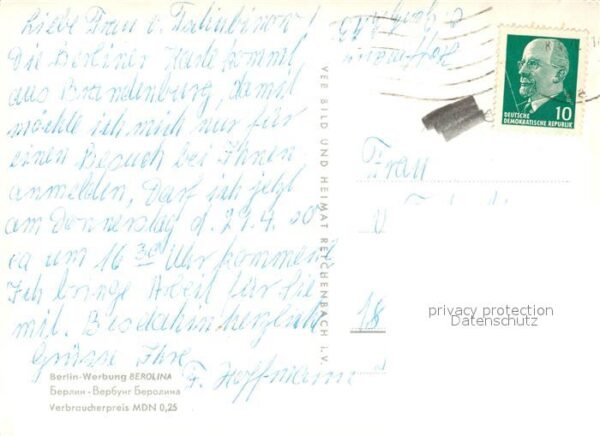 Liebe Frau v.
Die Berliner Karte kommt
aus Brandenburg, damit
möchte ich mich nur für
einen Besuch bei Ihnen
anmelden, Darf ich jetzt
am Donnerstag d. 29.4.
ca um 16 30 Uhr kommen?
Ich bringe Arbeit für Sie
mit. Bis dahin herzliche
Grüsse Ihre
Fr. Hoffmann
Berlin-Werbung BEROLINA
Берлин - Вербунг Беролина
Verbraucherpreis MDN 0,25
VEB BILD UND HEIMAT REICHENBACH i. V.
Hoffmann
10
DEUTSCHE
DEMOKRATISCHE REPUBLIK
Frau
18
privacy protection
Datenschutz